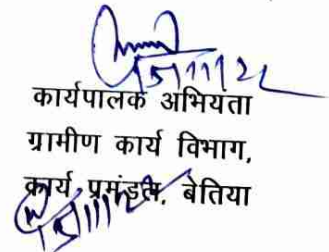 कार्यपालक अभियता
ग्रामीण कार्य विभाग,
कार्य प्रमंडल, बेतिया